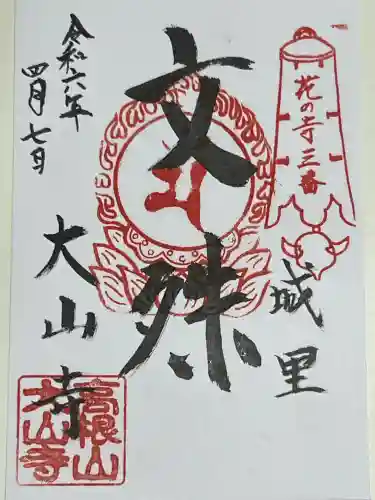 花の寺三番
城里
文殊
令和六年
四月七日
大山寺
高根山
大山寺